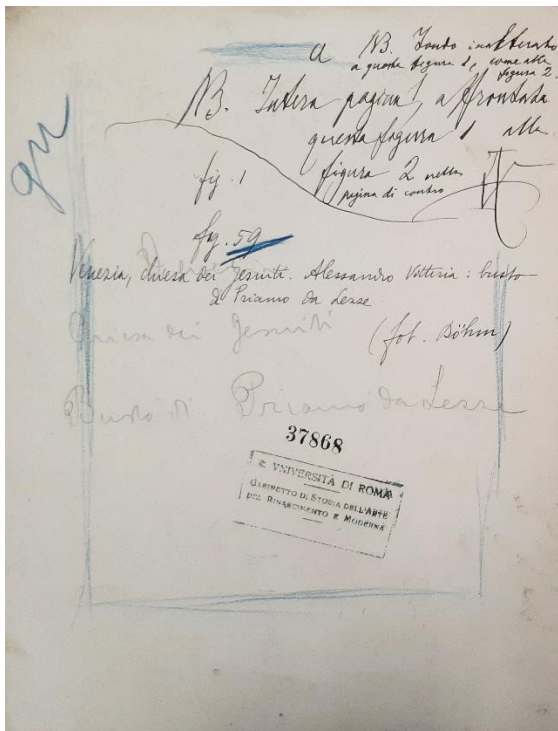 a NB. Fondo inalterato
a questa figura 1, come alla
figura 2.
NB. Intera pagina, affrontata
questa figura 1 alla
figura 2 nella
pagina di contro
gu
fig. 1
fig. 59
Venezia, chiesa dei Jesuiti. Alessandro Vittoria: busto
di Priamo da Lezze
(fot. Böhm)
Chiesa dei Jesuiti
Busto di Priamo da Lezze
37868
R. VNIVERSITÀ DI ROMA
GABINETTO DI STORIA DELL'ARTE
DEL RINASCIMENTO E MODERNA